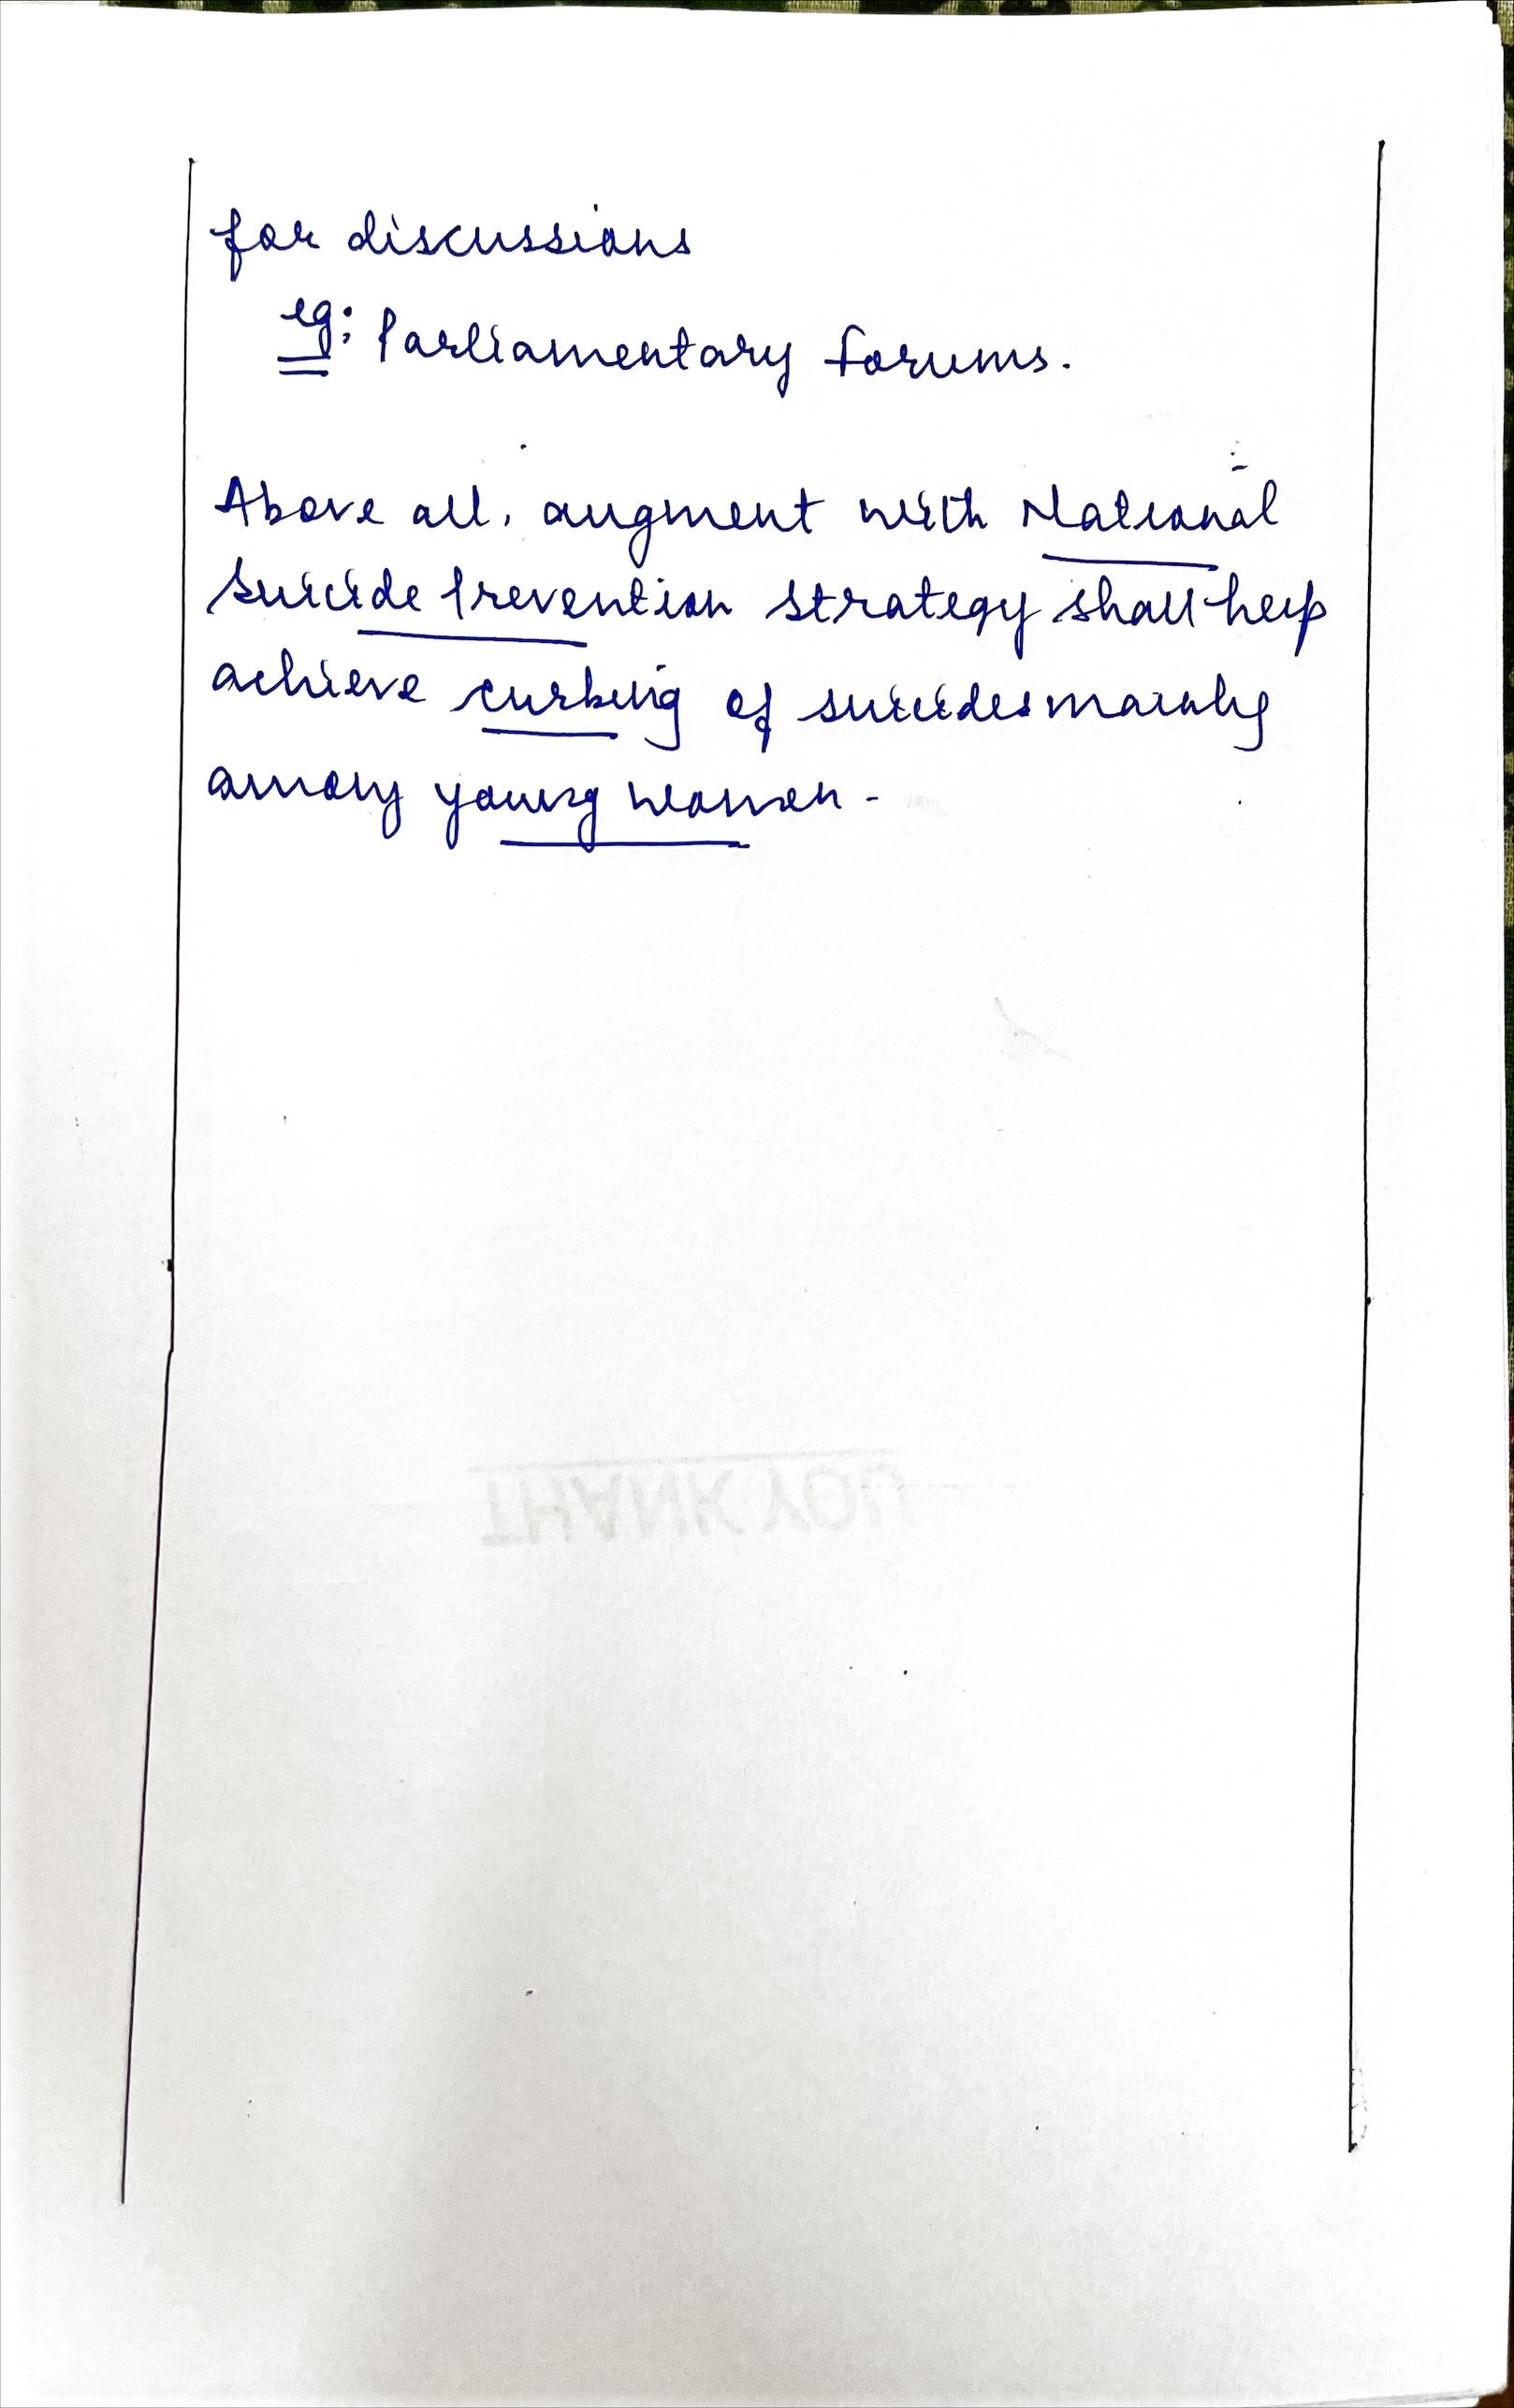 for discussions
eg: Parliamentary forums.
Above all, augment with National
Suicide Prevention strategy shall help
achieve curbing of suicides mainly
among young women.
THANK YOU